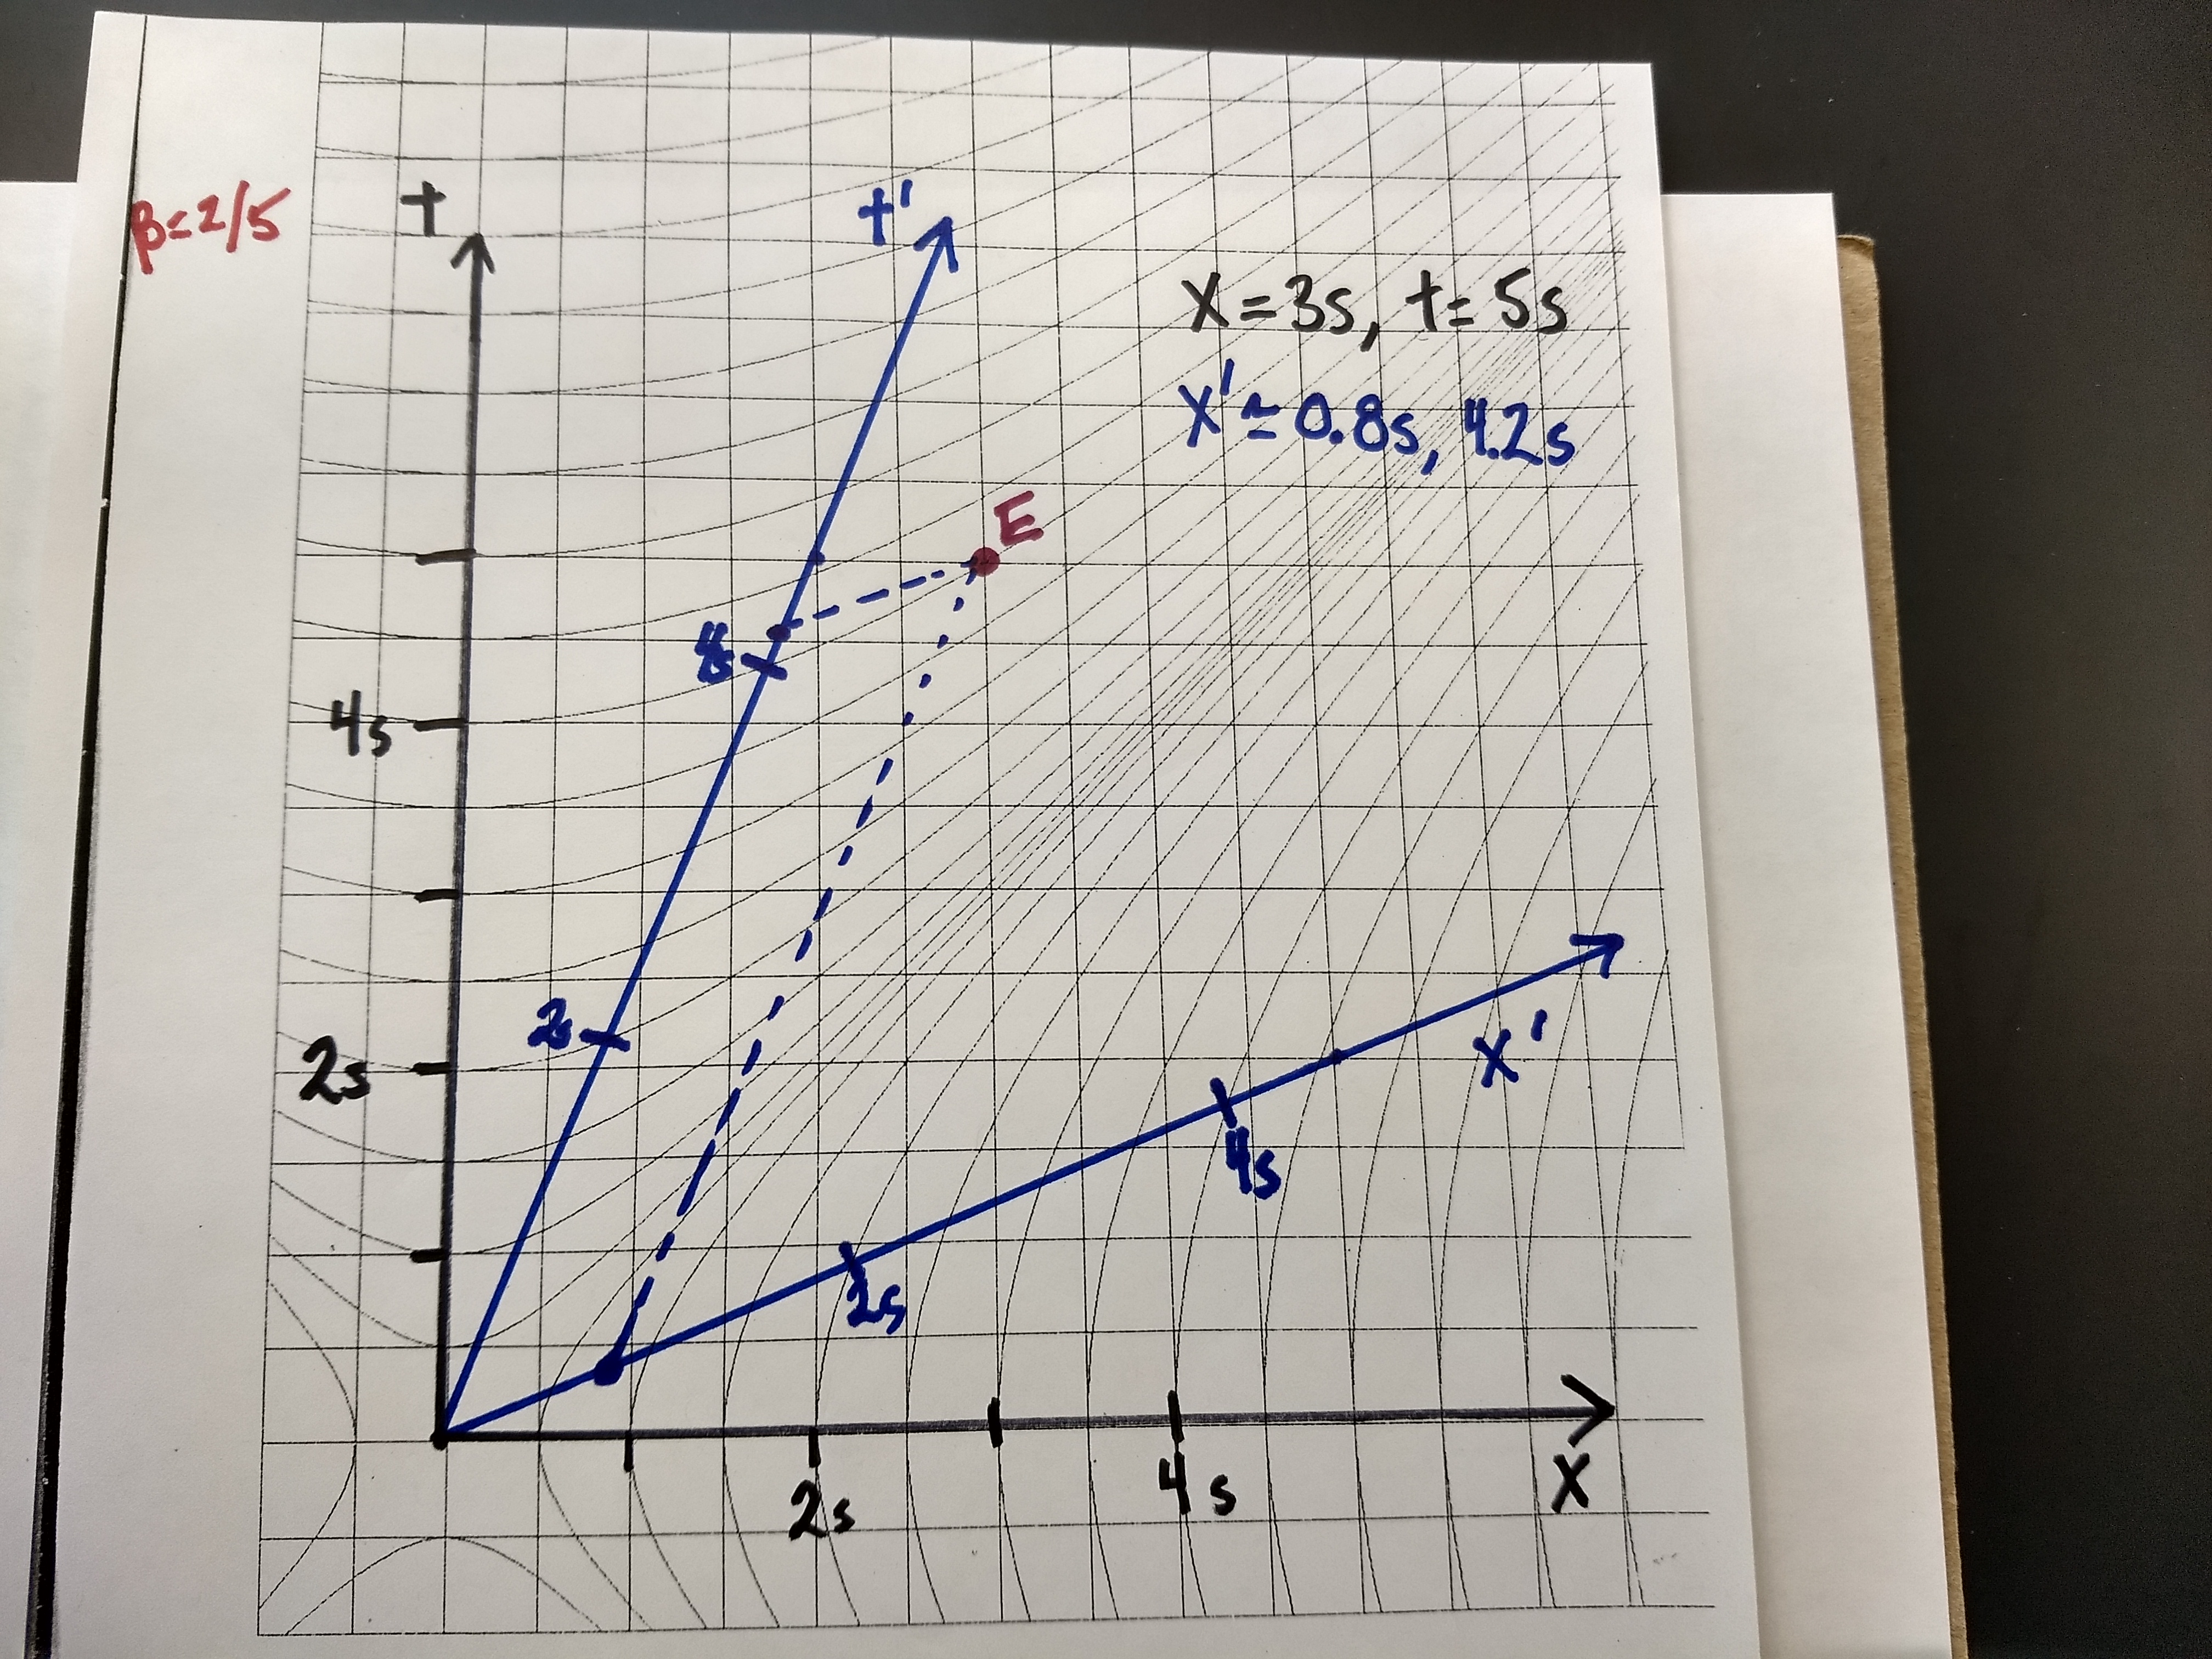 β=2/5
t
t'
x=3s, t=5s
x'≃0.8s, 4.2s
E
4s
2s
2s
x'
4s
2s
2s
4s
x